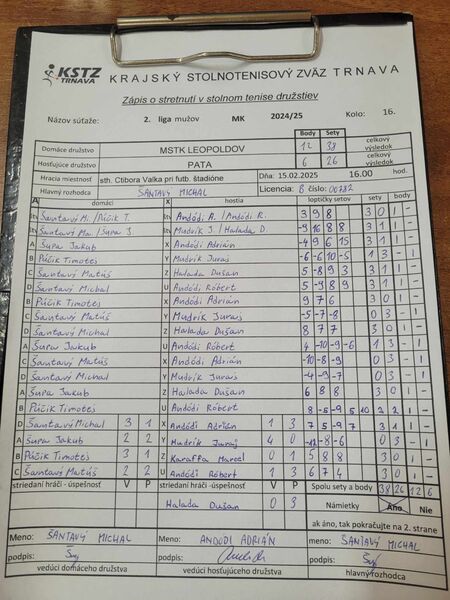 KSTZ TRNAVA KRAJSKÝ STOLNOTENISOVÝ ZVÄZ TRNAVA
Zápis o stretnutí v stolnom tenise družstiev
Názov súťaže: 2. liga mužov MK 2024/25 Kolo: 16.
Body Sety celkový výsledok
Domáce družstvo MSTK LEOPOLDOV 12 38
Hosťujúce družstvo PATA 6 26 celkový výsledok
Hracia miestnosť sth. Ctibora Valka pri futb. štadióne Dňa: 15.02.2025 16.00 hod.
Hlavný rozhodca ŠANTAVÝ MICHAL Licencia: B číslo: 00782
A domáci X hostia loptičky setov sety body
štv Šantavý M./Púčik T. štv Andódi A./Andódi R. 3 9 8 3 0 1 -
štv Šantavý Ma./Šupa J. štv Mudrík J./Halada D. -9 16 8 8 3 1 1 -
A Šupa Jakub X Andódi Adrián -4 9 6 15 3 1 1 -
B Púčik Timotej Y Mudrík Juraj -6 -6 10 -5 1 3 - 1
C Šantavý Matúš Z Halada Dušan 5 -8 9 3 3 1 1 -
D Šantavý Michal U Andódi Róbert 5 -9 8 9 3 1 1 -
B Púčik Timotej X Andódi Adrián 9 7 6 3 0 1 -
C Šantavý Matúš Y Mudrík Juraj -5 -7 -8 0 3 - 1
D Šantavý Michal Z Halada Dušan 8 7 7 3 0 1 -
A Šupa Jakub U Andódi Róbert 4 -10 -9 -6 1 3 - 1
C Šantavý Matúš X Andódi Adrián -10 -8 -9 0 3 - 1
D Šantavý Michal Y Mudrík Juraj -4 -9 -7 0 3 - 1
A Šupa Jakub Z Halada Dušan 6 8 8 3 0 1 -
B Púčik Timotej U Andódi Róbert 8 -5 -9 5 10
D Šantavý Michal 3 1 X Andódi Adrián 1 3 7 5 -9 7 3 1 1 -
A Šupa Jakub 2 2 Y Mudrík Juraj 4 0 -12 -8 -6 0 3 - 1
B Púčik Timotej 3 1 Z Karaffa Marcel 0 1 5 8 8 3 0 1 -
C Šantavý Matúš 2 2 U Andódi Róbert 1 3 6 7 4 3 0 1 -
striedaní hráči - úspešnosť V P striedaní hráči - úspešnosť V P Spolu sety a body 38 26 12 6
Námietky Áno Nie
Halada Dušan 0 3
ak áno, tak pokračujte na 2. strane
Meno: ŠANTAVÝ MICHAL Meno: ANDÓDI ADRIÁN Meno: ŠANTAVÝ MICHAL
podpis: podpis: podpis:
vedúci domáceho družstva vedúci hosťujúceho družstva hlavný rozhodca